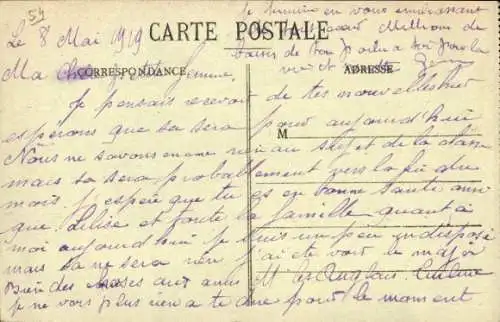 54
Je termine en vous embrassant
CARTE POSTALE
Le 8 Mai 1919
baiser de ton Poilu a toi pour la
vie
Ma Chère petite femme,
CORRESPONDANCE
ADRESSE
Je pensais recevoir de tes nouvelles hier
esperons que sa sera pour aujourd'hui
M
Nous ne savons encore rien au sujet de la classe
mais sa sera probablement vers la fin du
mois j'espère que tu es en bonne santé ainsi
que Lélise et toute la famille quant à
moi aujourd'hui je suis un peu indisposé
mais sa ne sera rien j'ai été voir le major
Bien des choses aux amis M
je ne vois plus rien a te dire pour le moment